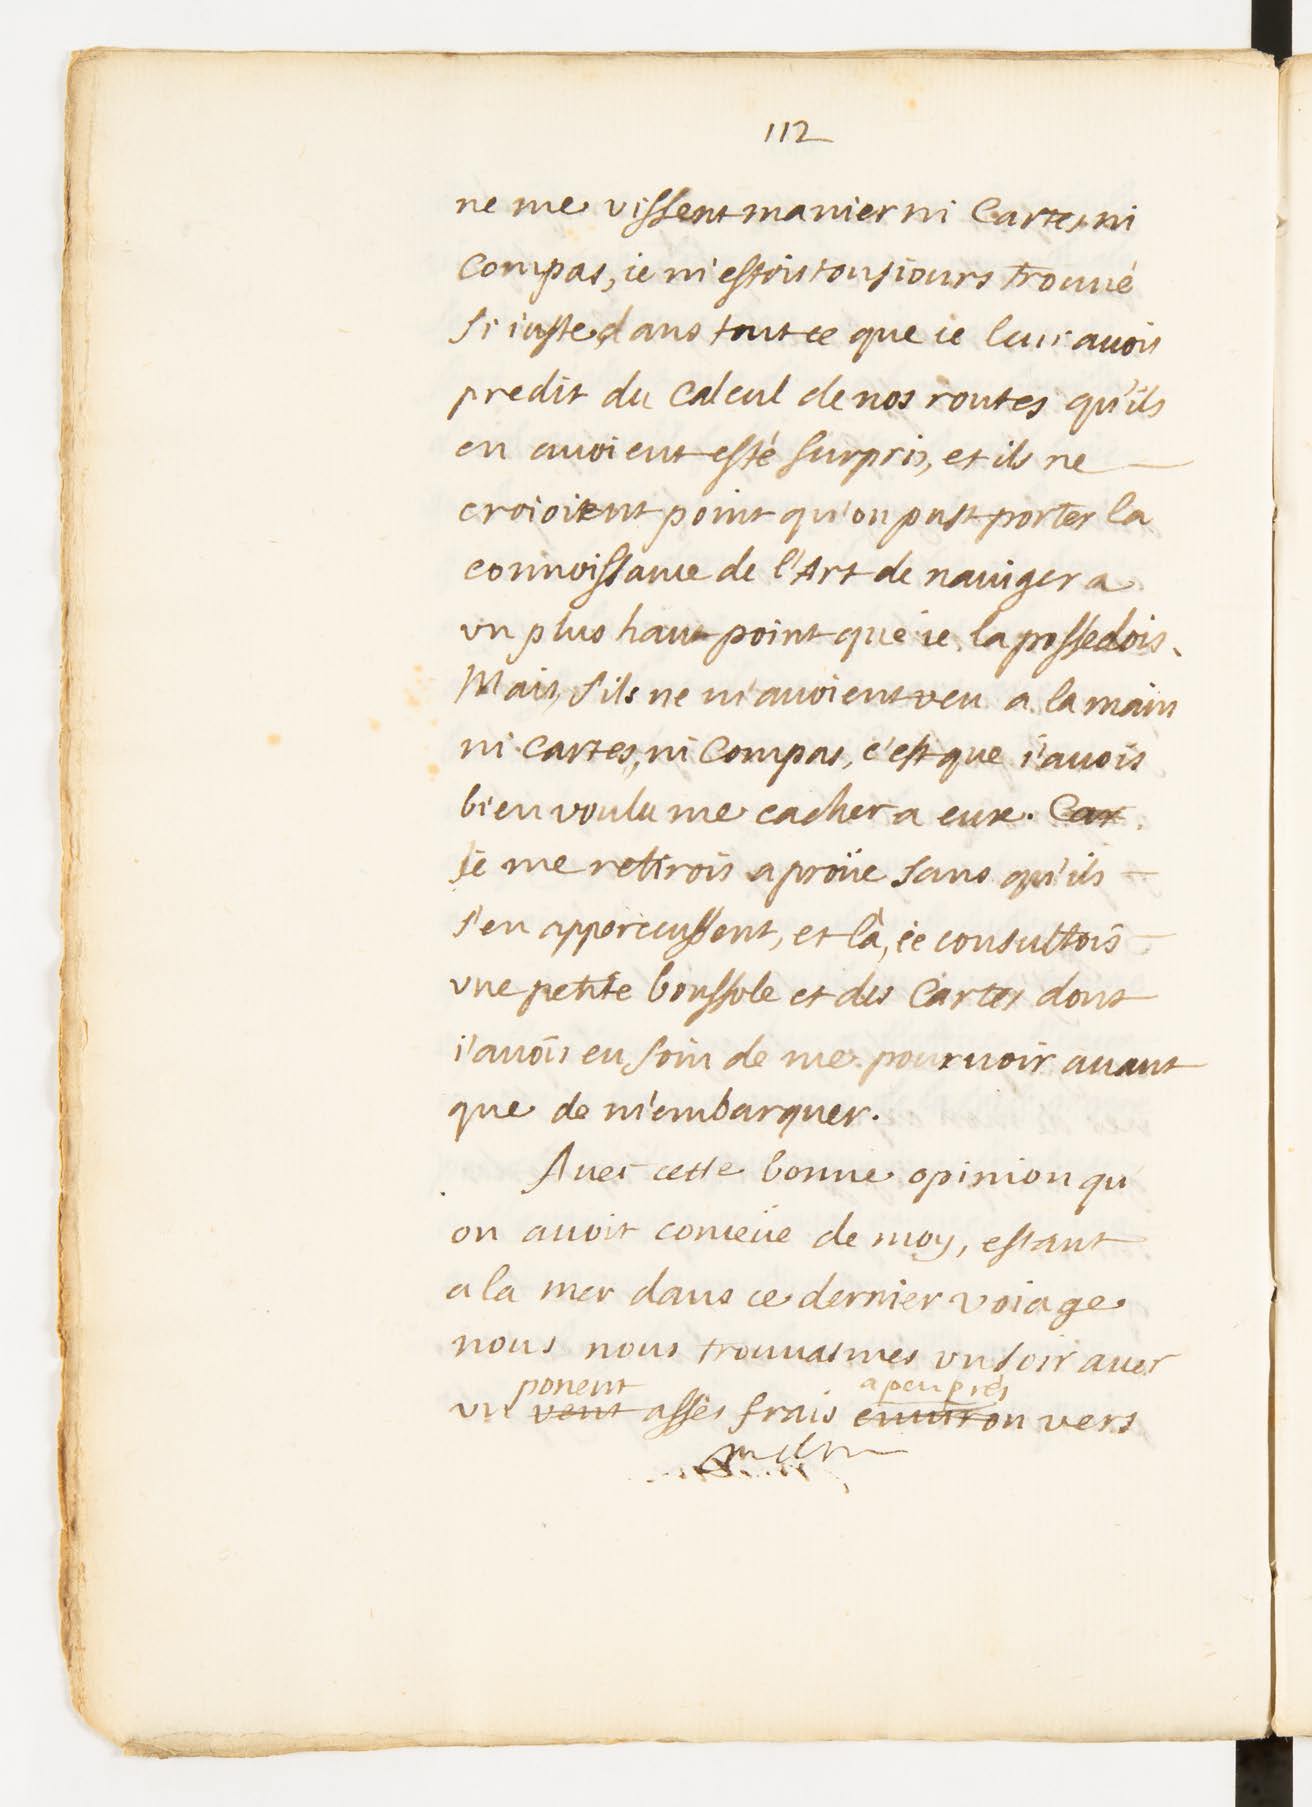 112
ne me vissent manier ni Cartes ni
Compas, ie m'estois tousiours trouué
si iuste dans tout ce que ie leur auois
predit du Calcul de nos routes qu'ils
en auoient esté surpris, et ils ne
croioient point qu'on pust porter la
connoissance de l'Art de nauiger a
vn plus haut point que ie la possedois.
Mais, s'ils ne m'auoient veu a la main
ni Cartes, ni Compas, c'est que i'auois
bien voulu me cacher a eux. Car
ie me retirois a proüe sans qu'ils
s'en apperceussent, et là, ie consultois
vne petite boussole et des Cartes dont
i'auois eu soin de me pouruoir auant
que de m'embarquer.
Auec cette bonne opinion qu'
on auoit conceüe de moy, estant
a la mer dans ce dernier voiage
nous nous trouuasmes vn soir auec
ponent a peu prés
vn vent assés frais enuiron vers